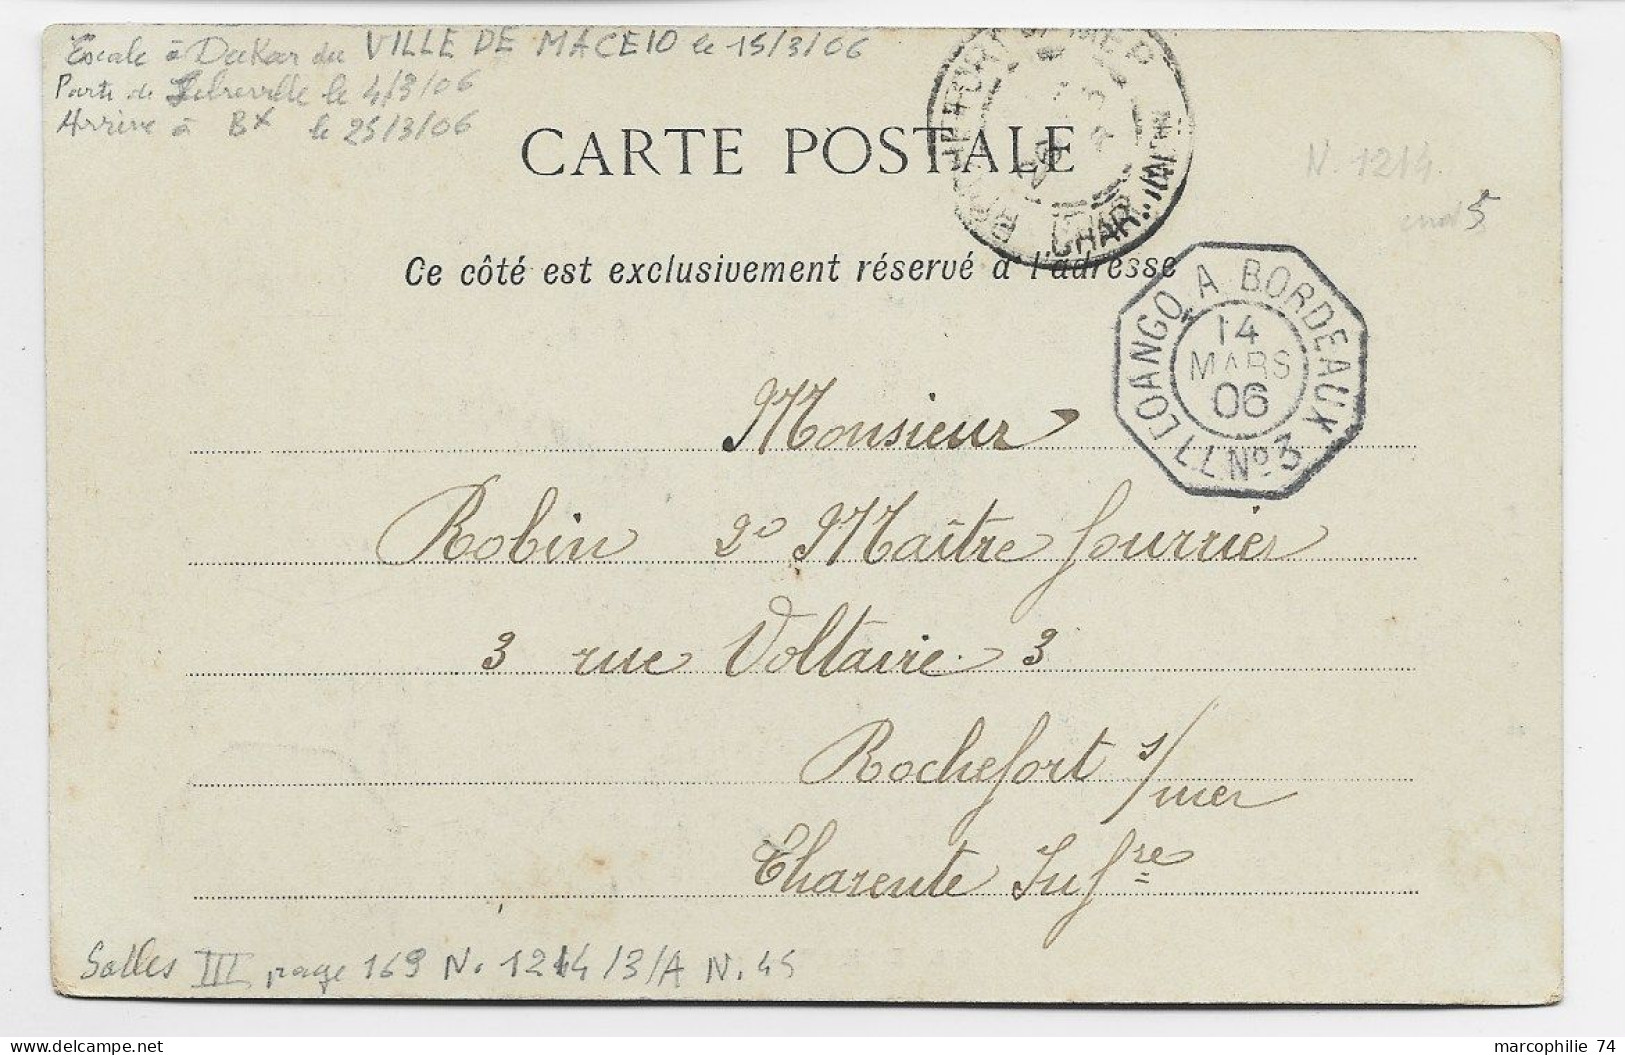 Escale à Dakar du VILLE DE MACEIO le 15/3/06
Parti de Libreville le 4/3/06
Arrive à Bx le 25/3/06
CARTE POSTALE
N. 1214
ind 5
Ce côté est exclusivement réservé à l'adresse
ROCHEFORT S/MER
CHAR. INFRE
LOANGO A BORDEAUX
14
MARS
06
L L No 3
Monsieur
Robin 2e Maître fourrier
3 rue Voltaire 3
Rochefort s/mer
Charente Infre
Salles III page 169 N. 1214/3/A N. 45
marcophilie 74